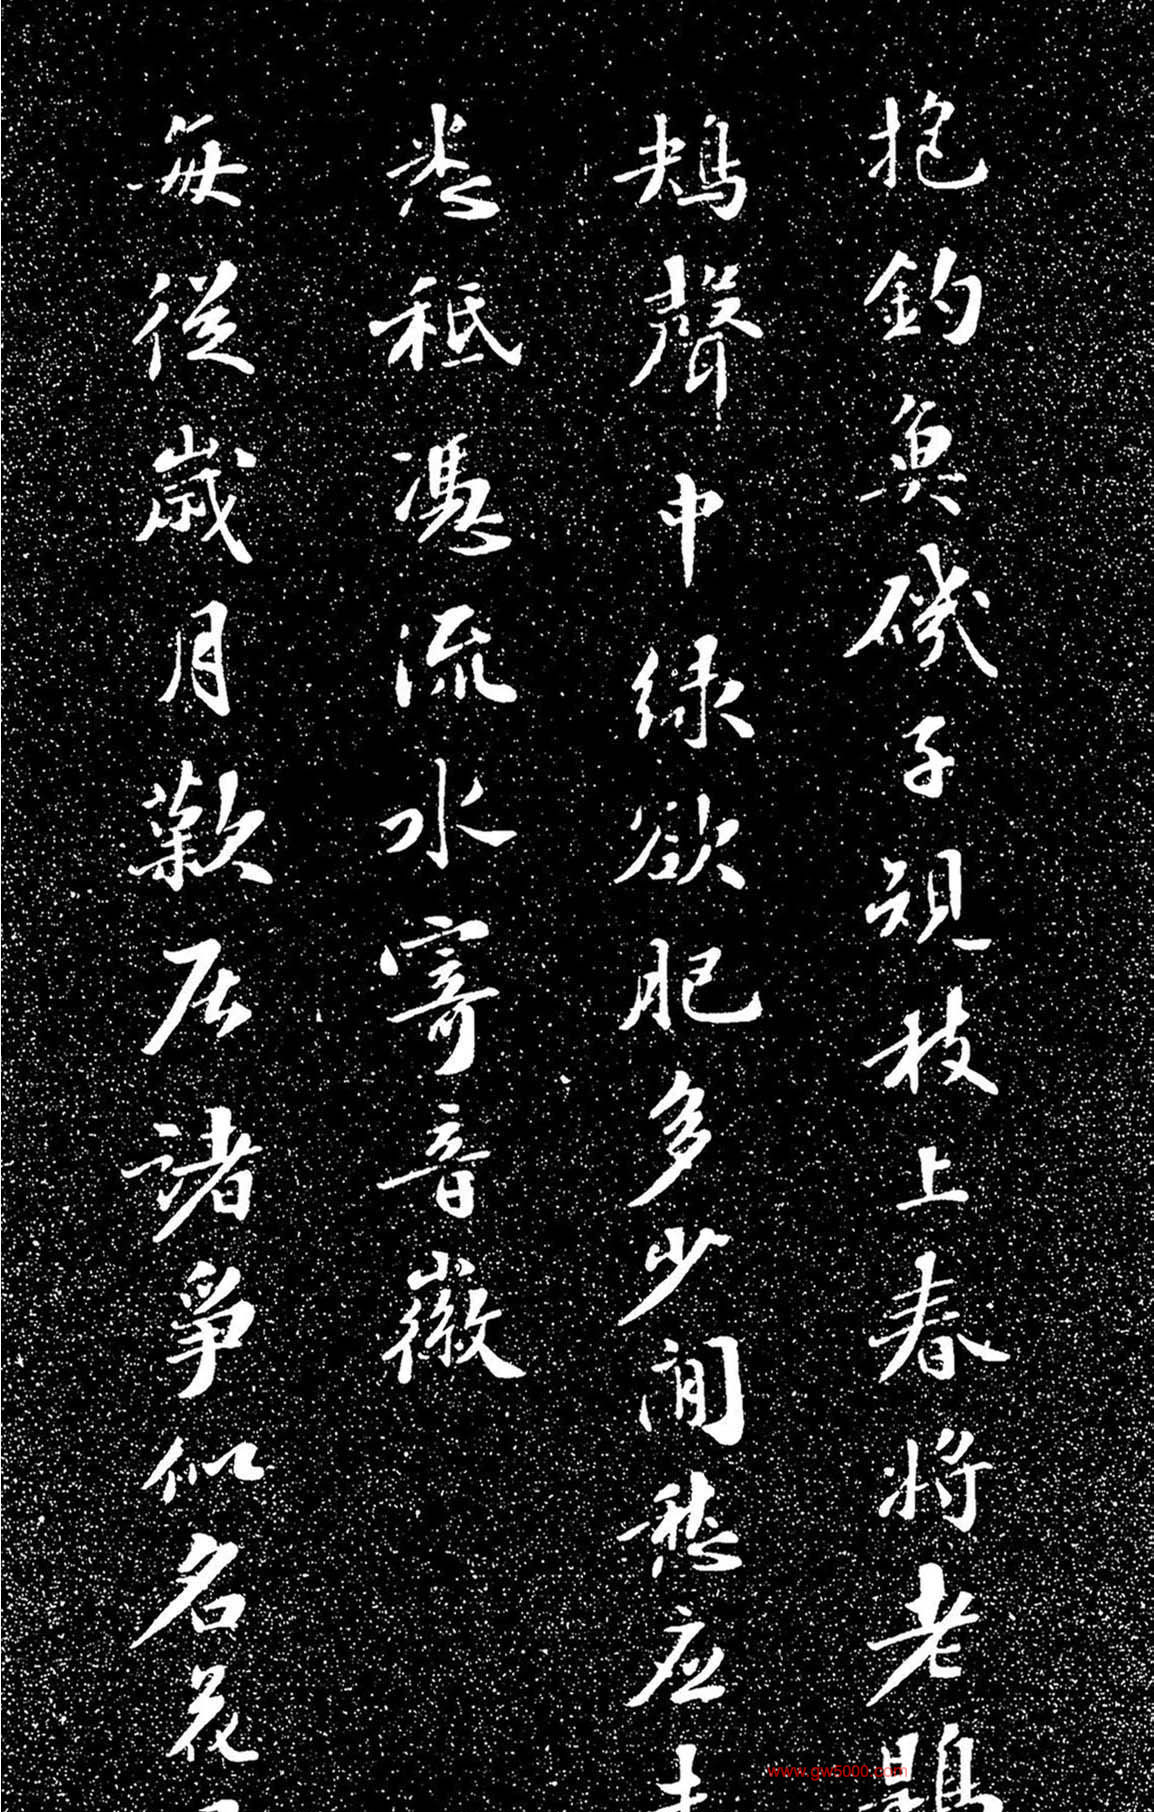 抱釣魚磯子規枝上春將老鶗
鴂聲中緑欲肥多少閒愁应未
悉秪憑流水寄音徽
每從歲月歎居諸爭似名花
www.gw5000.com